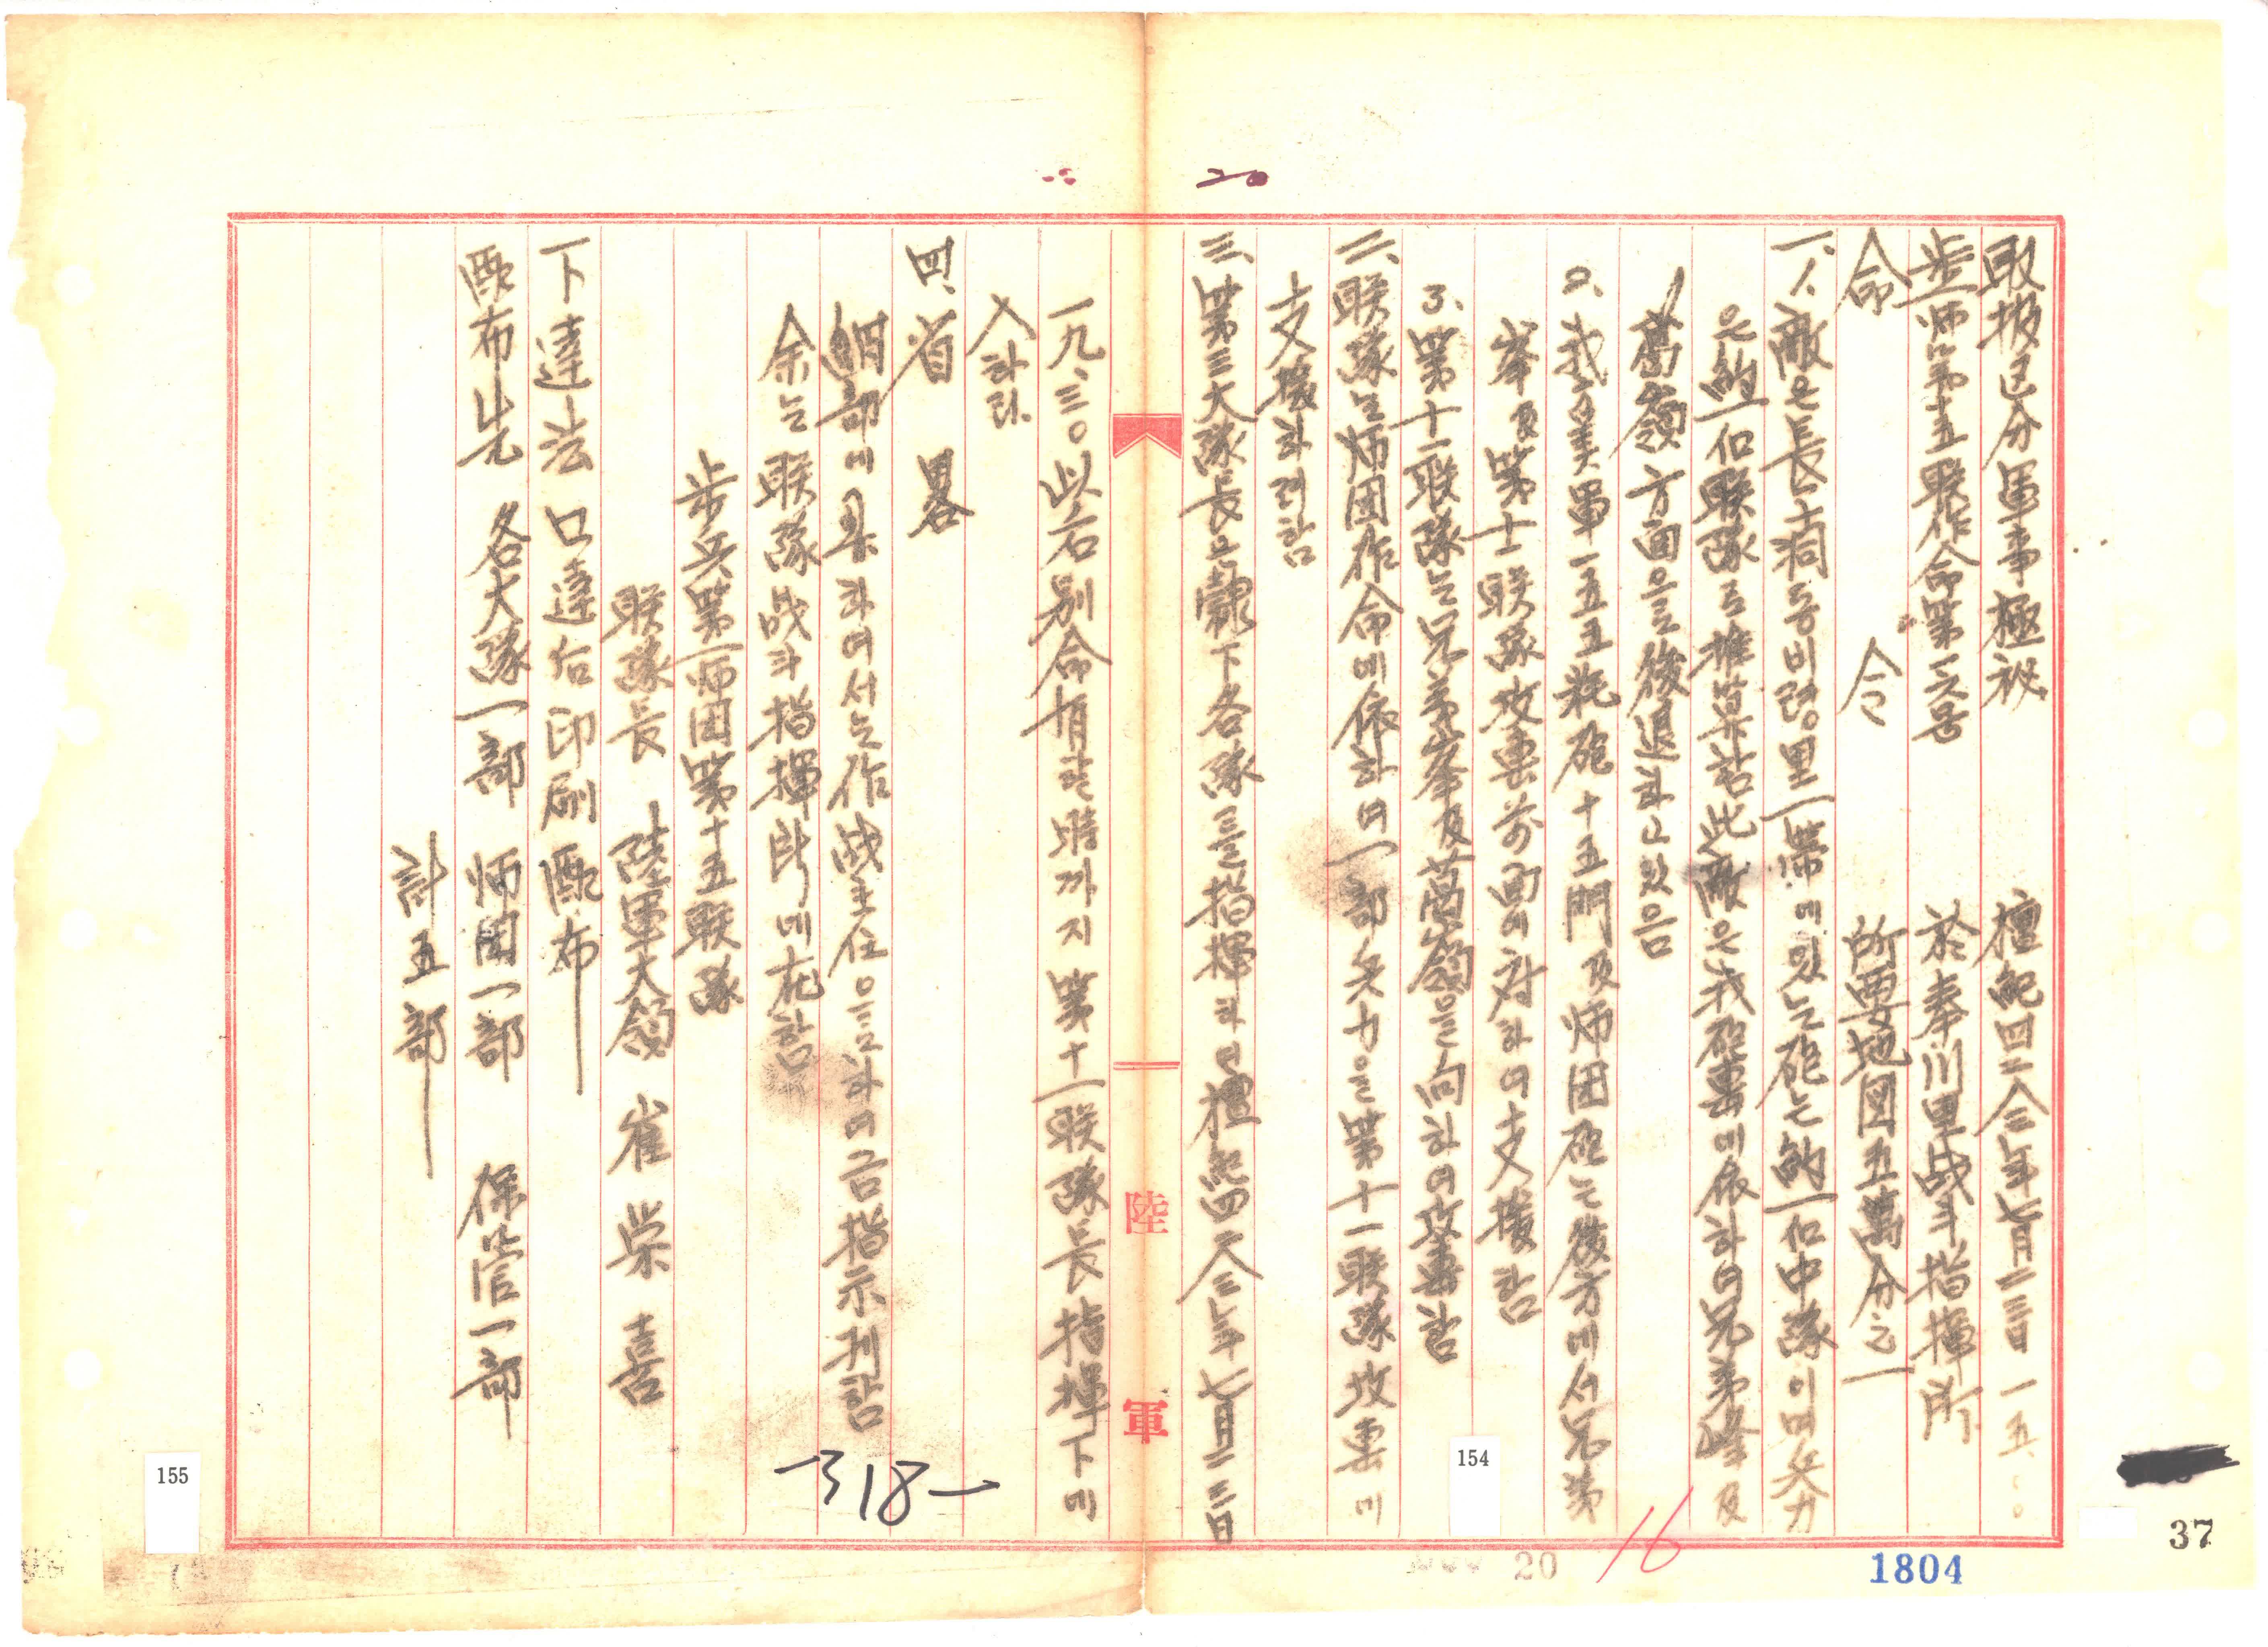 取扱区分 軍事極秘 檀紀四二八三年七月二三日 一五:〇〇
步一師第十五聯作命第一六号 於奉川里战斗指揮所
命 令 所要地図五萬分之一
一、1、敵은長洞동비령里一帶에있는砲는約一個中隊이며兵力
은約一個聯隊로推算함此敵은我砲擊에依하여兄弟峰及
萬嶺方面으로後退하고있음
2、我美軍一五五粍砲十五門及师团砲는後方에서兄弟
峯及第十一聯隊攻擊前面에対하여支援함
3、第十一聯隊는兄弟峯及萬嶺을向하여攻擊함
二、聯隊는师团作命에依하여一部兵力을第十一聯隊攻擊에
支援하려함
三、第三大隊長은隷下各隊를指揮하면檀紀四二八三年七月二三日
一九、三〇以后別命有할時까지第十一聯隊長指揮下에
入하라
四、省 畧
細部에関하여서는作战主任으로하여금指示케함
余는聯隊战斗指揮所에在함
步兵第一师団第十五聯隊
聯隊長 陸軍大領 崔 栄 喜
下達法 口達后印刷配布
配布先 各大隊一部 师団一部 保管一部
計五部
陸 軍
20
-318-
154
155
20
16
1804
37